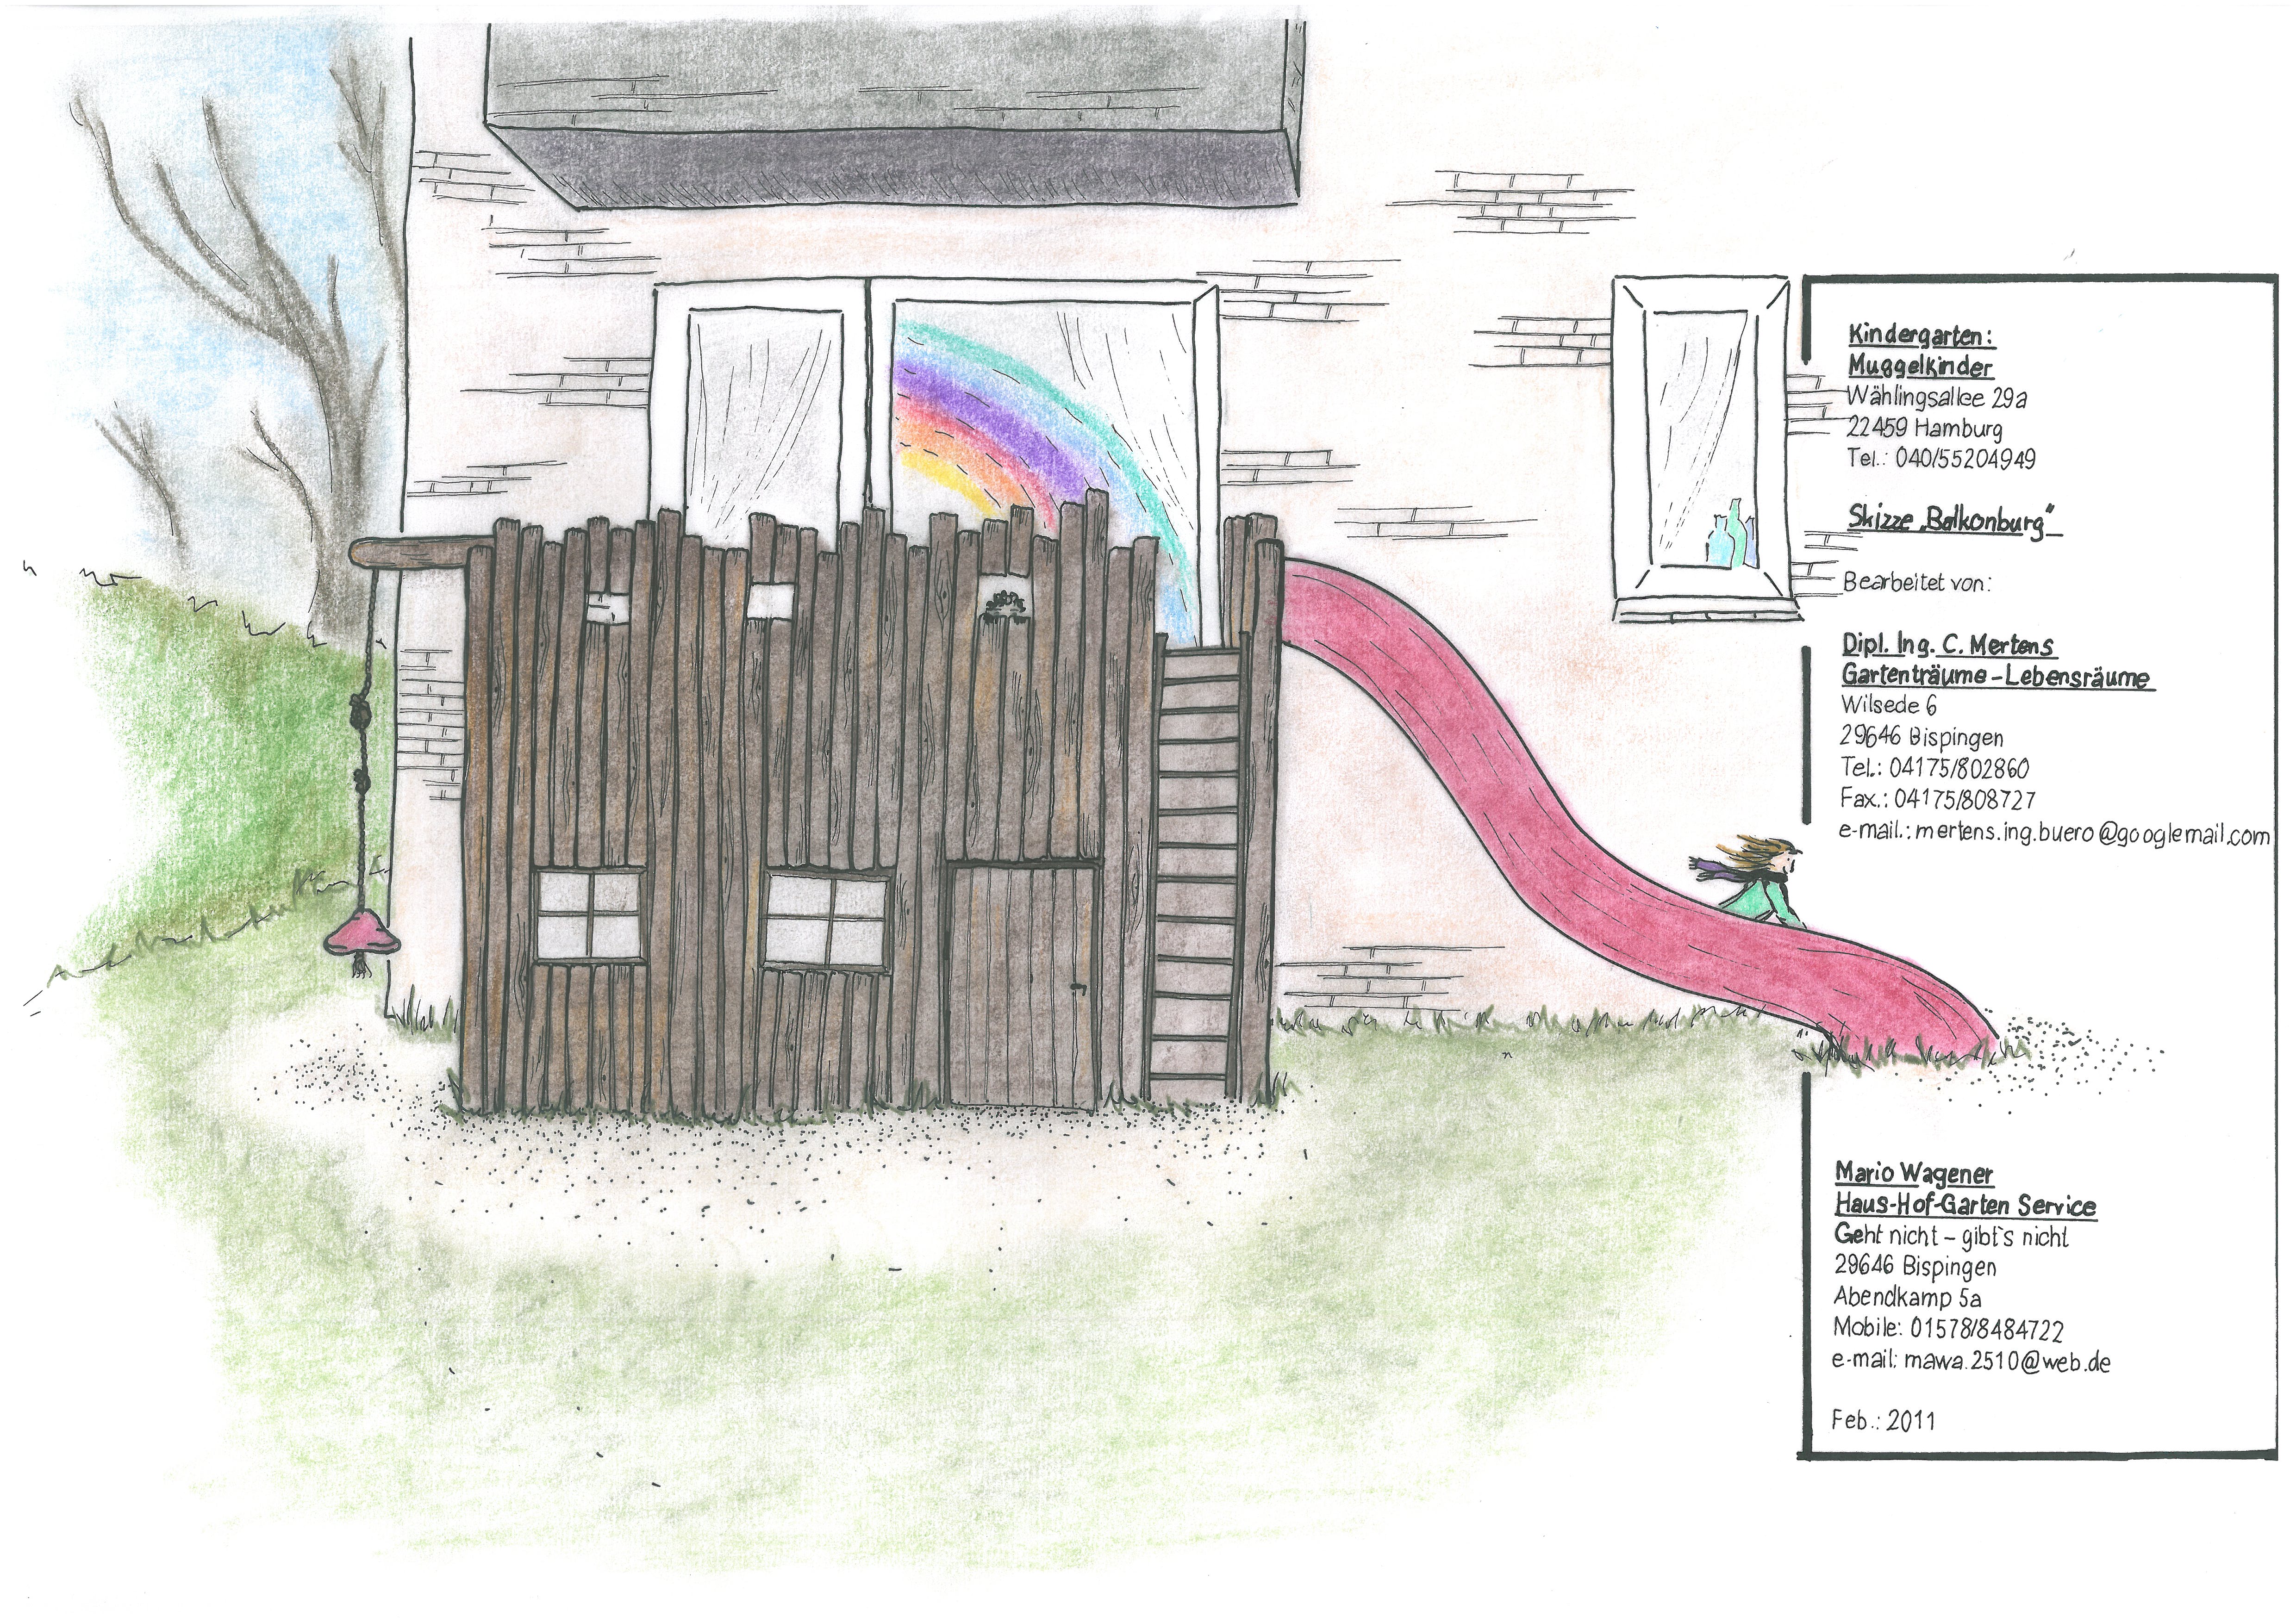 Kindergarten:
Muggelkinder
Wählingsallee 29a
22459 Hamburg
Tel.: 040/55204949
Skizze „Balkonburg"
Bearbeitet von:
Dipl. Ing. C. Mertens
Gartenträume - Lebensräume
Wilsede 6
29646 Bispingen
Tel.: 04175/802860
Fax.: 04175/808727
e-mail.: mertens.ing.buero@googlemail.com
Mario Wagener
Haus-Hof-Garten Service
Geht nicht - gibt`s nicht
29646 Bispingen
Abendkamp 5a
Mobile: 01578/8484722
e-mail: mawa.2510@web.de
Feb.: 2011